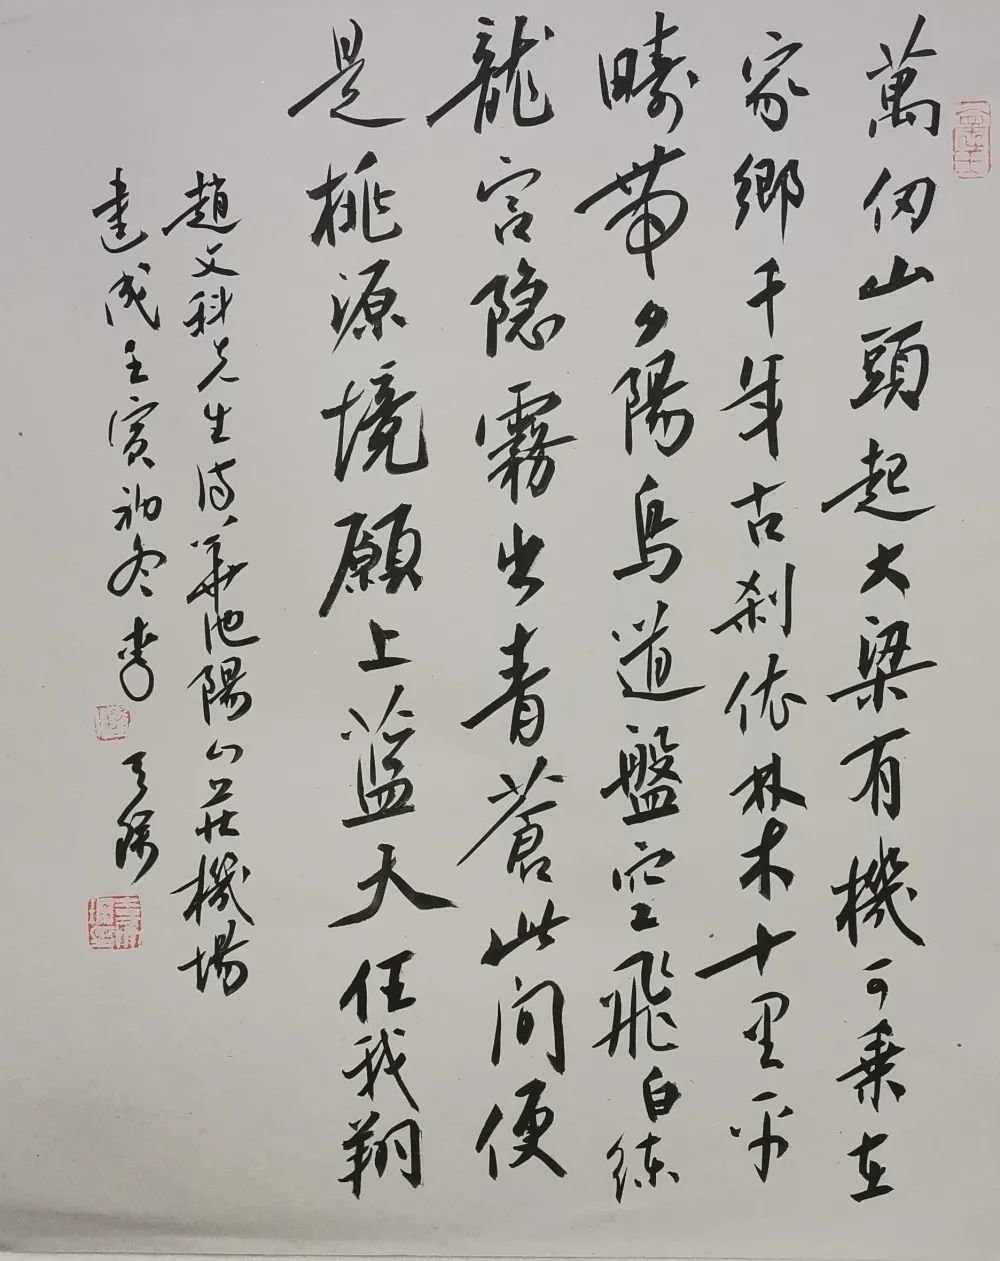 萬仞山頭起大梁有機可乗在
家鄉千年古刹依林木十里平
疇帶夕陽鳥道盤空飛白练
龍宫隐霧出青蒼此间便
是桃源境願上蓝天任我翔
趙文科先生诗華池陽山莊機場
建成壬寅初冬書